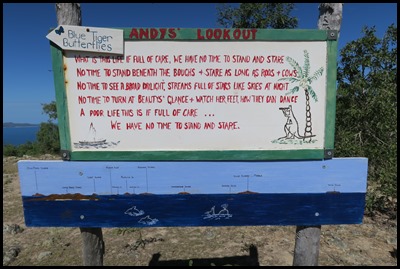 Blue Tiger
Butterflies
ANDYS' LOOKOUT
WHAT IS THIS LIFE IF FULL OF CARE, WE HAVE NO TIME TO STAND AND STARE
NO TIME TO STAND BENEATH THE BOUGHS + STARE AS LONG AS ROOS + COWS
NO TIME TO SEE BROAD DAYLIGHT, STREAMS FULL OF STARS LIKE SKIES AT NIGHT
NO TIME TO TURN AT BEAUTYS' GLANCE + WATCH HER FEET, HOW THEY CAN DANCE
A POOR LIFE THIS IS IF FULL OF CARE ...
WE HAVE NO TIME TO STAND AND STARE.